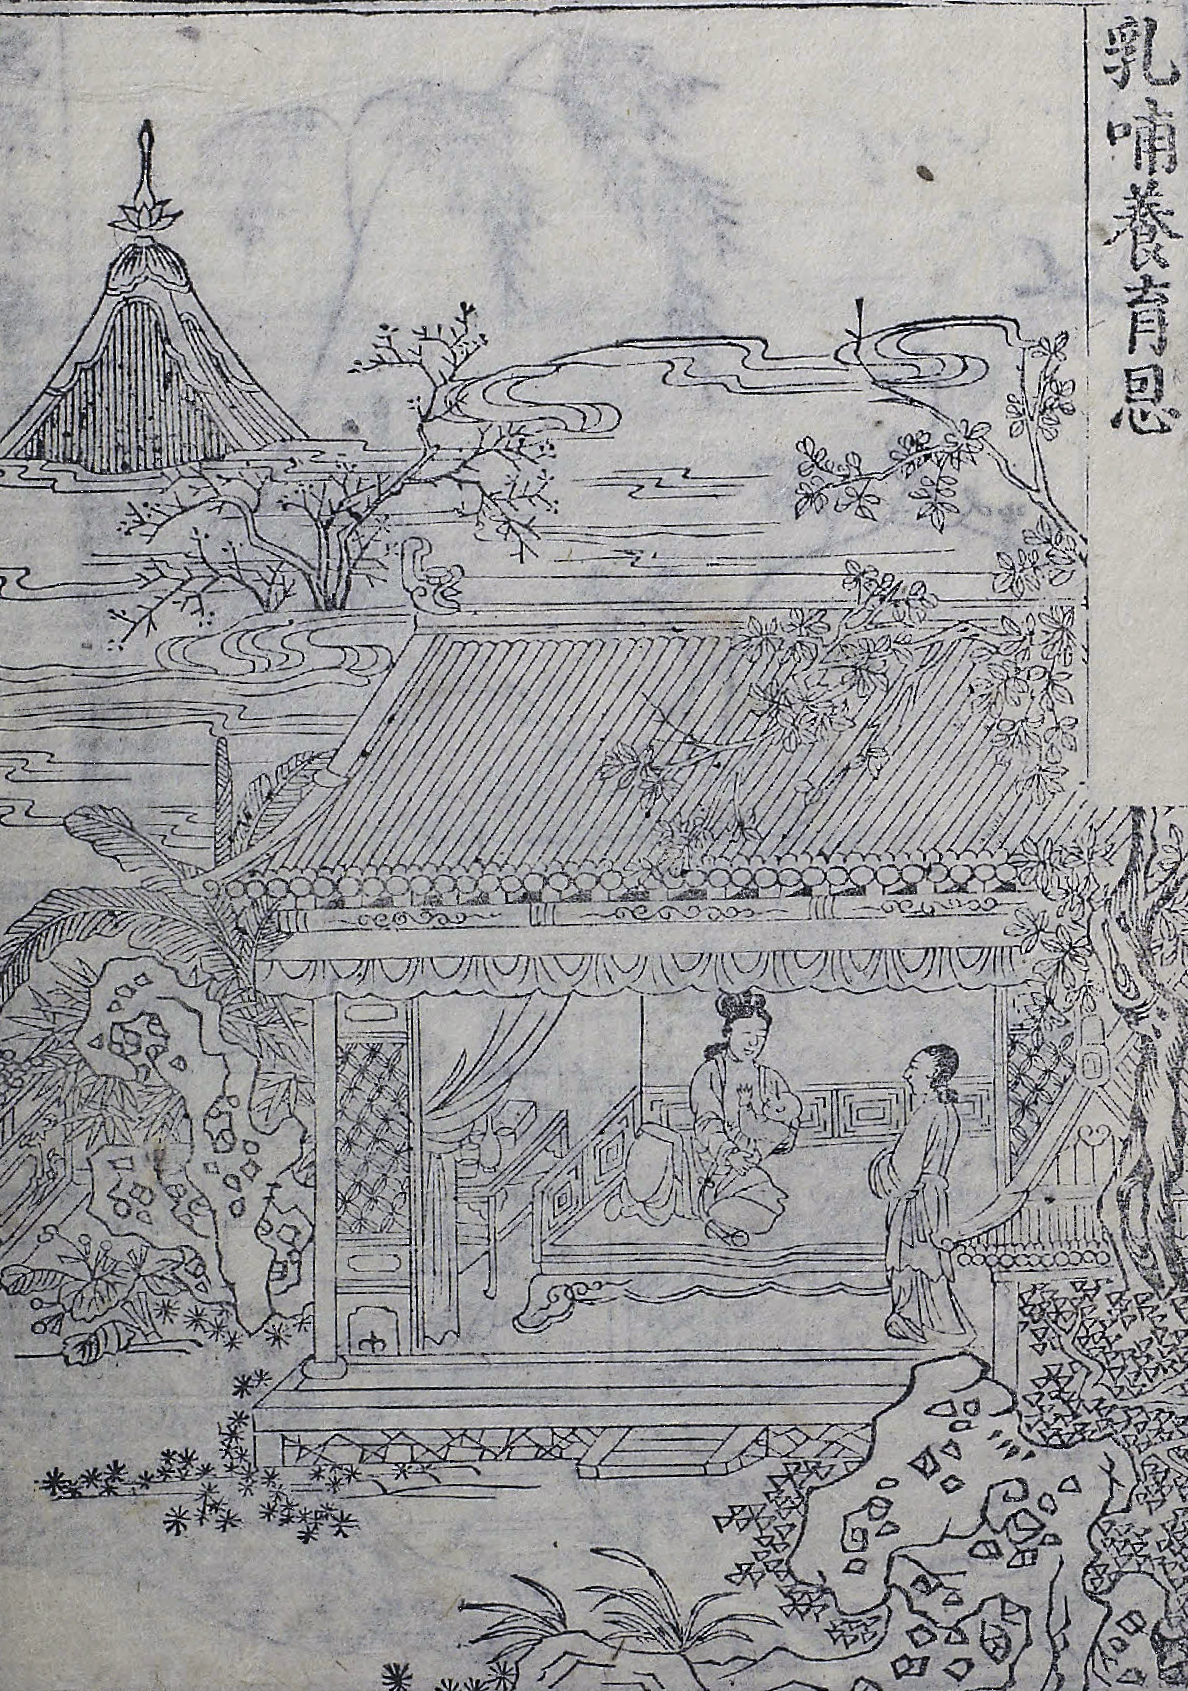 乳哺養育恩